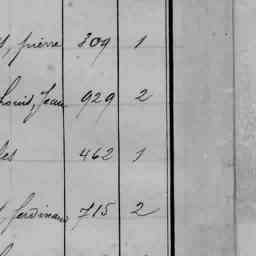 pierre 309 1
Louis, Jean 929 2
les 462 1
ferdinand 715 2